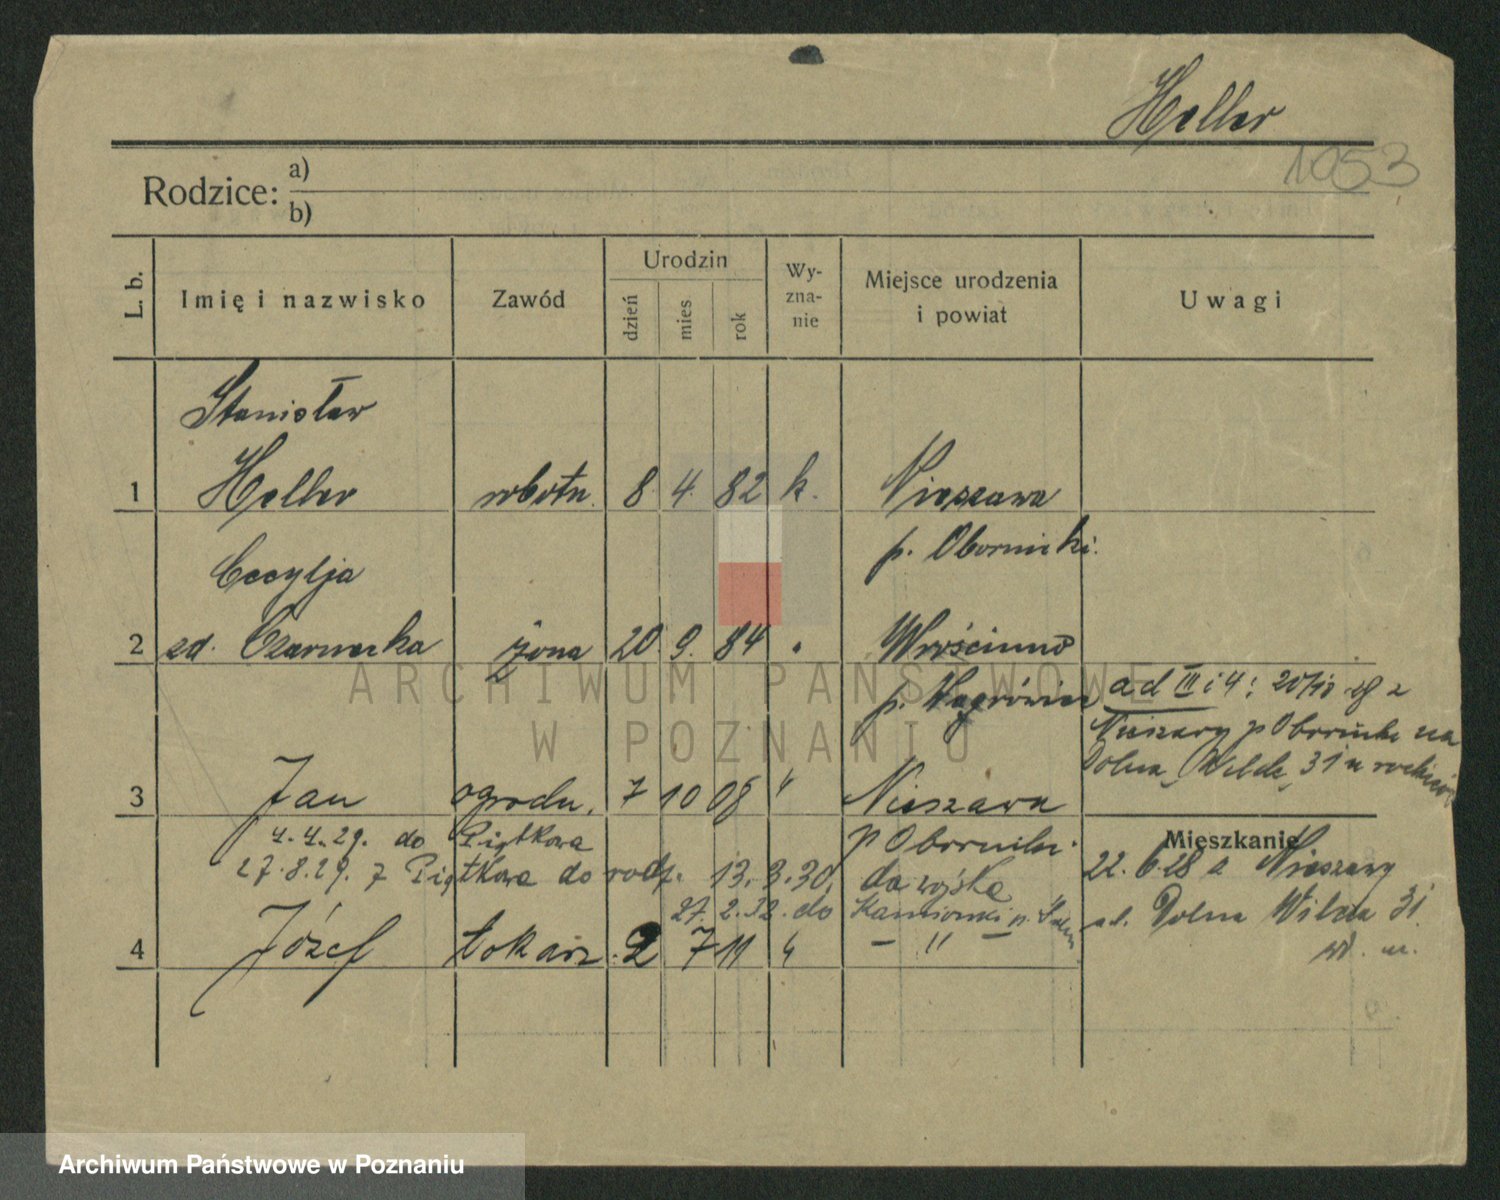 Heller
1053
Rodzice:
a)
b)
L. b.
Imię i nazwisko
Zawód
Urodzin
dzień
mies
rok
Wy-
zna-
nie
Miejsce urodzenia
i powiat
Uwagi
Stanisław
1 Heller robotn. 8. 4. 82 k. Nieszawa
p. Oborniki.
Cecylja
2 zd. Czarnecka żona 20 9. 84 " Wrościnno
p. Wągrówiec
ad III i 4: 20/10 z
Nieszawy p Obornik na
Dolna Wilda 31 u rodziców
3 Jan ogrodn. 7 10 08 " Nieszawa
4.4.29. do Piątkowa p Oborniki.
27.8.29. z Piątkowa do rodz. 13.3.30. do wojska
27. 2. 32. do Kamionki p.
4 Józef tokarz. 2 7 11 " — " —
Mieszkanie
22. 6. 28 z Nieszawy
ul. Dolna Wilda 31.
ARCHIWUM PAŃSTWOWE
W POZNANIU
Archiwum Państwowe w Poznaniu